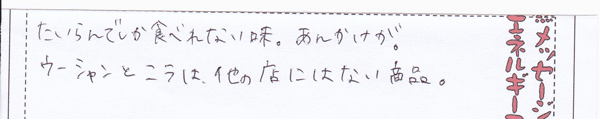 たいらんでしか食べれない味。あんかけが。
ウーシャンとこうは、他の店にはない商品。
メッセージ
エネルギー